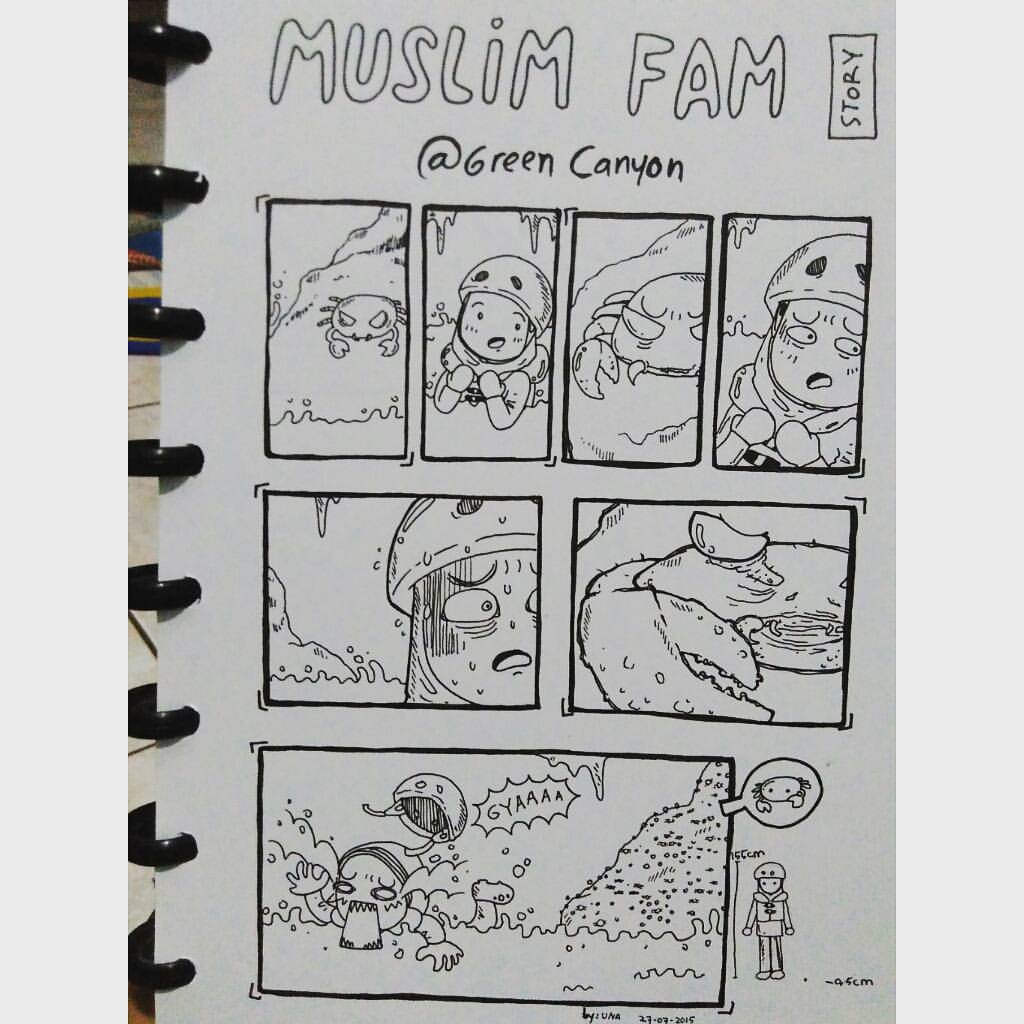 MUSLiM FAM
STORY
@Green Canyon
GYAAAA
155cm
~.45cm
by: UNA 27-07-2015